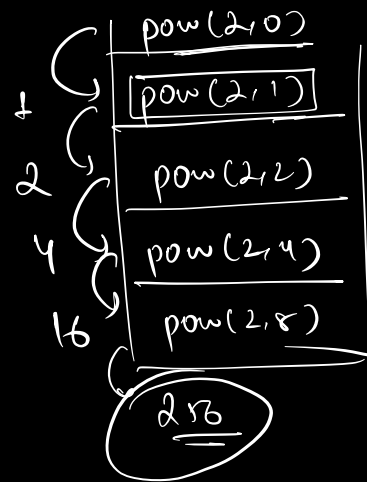 pow(2,0)
1
pow(2,1)
2
pow(2,2)
4
pow(2,4)
16
pow(2,8)
256